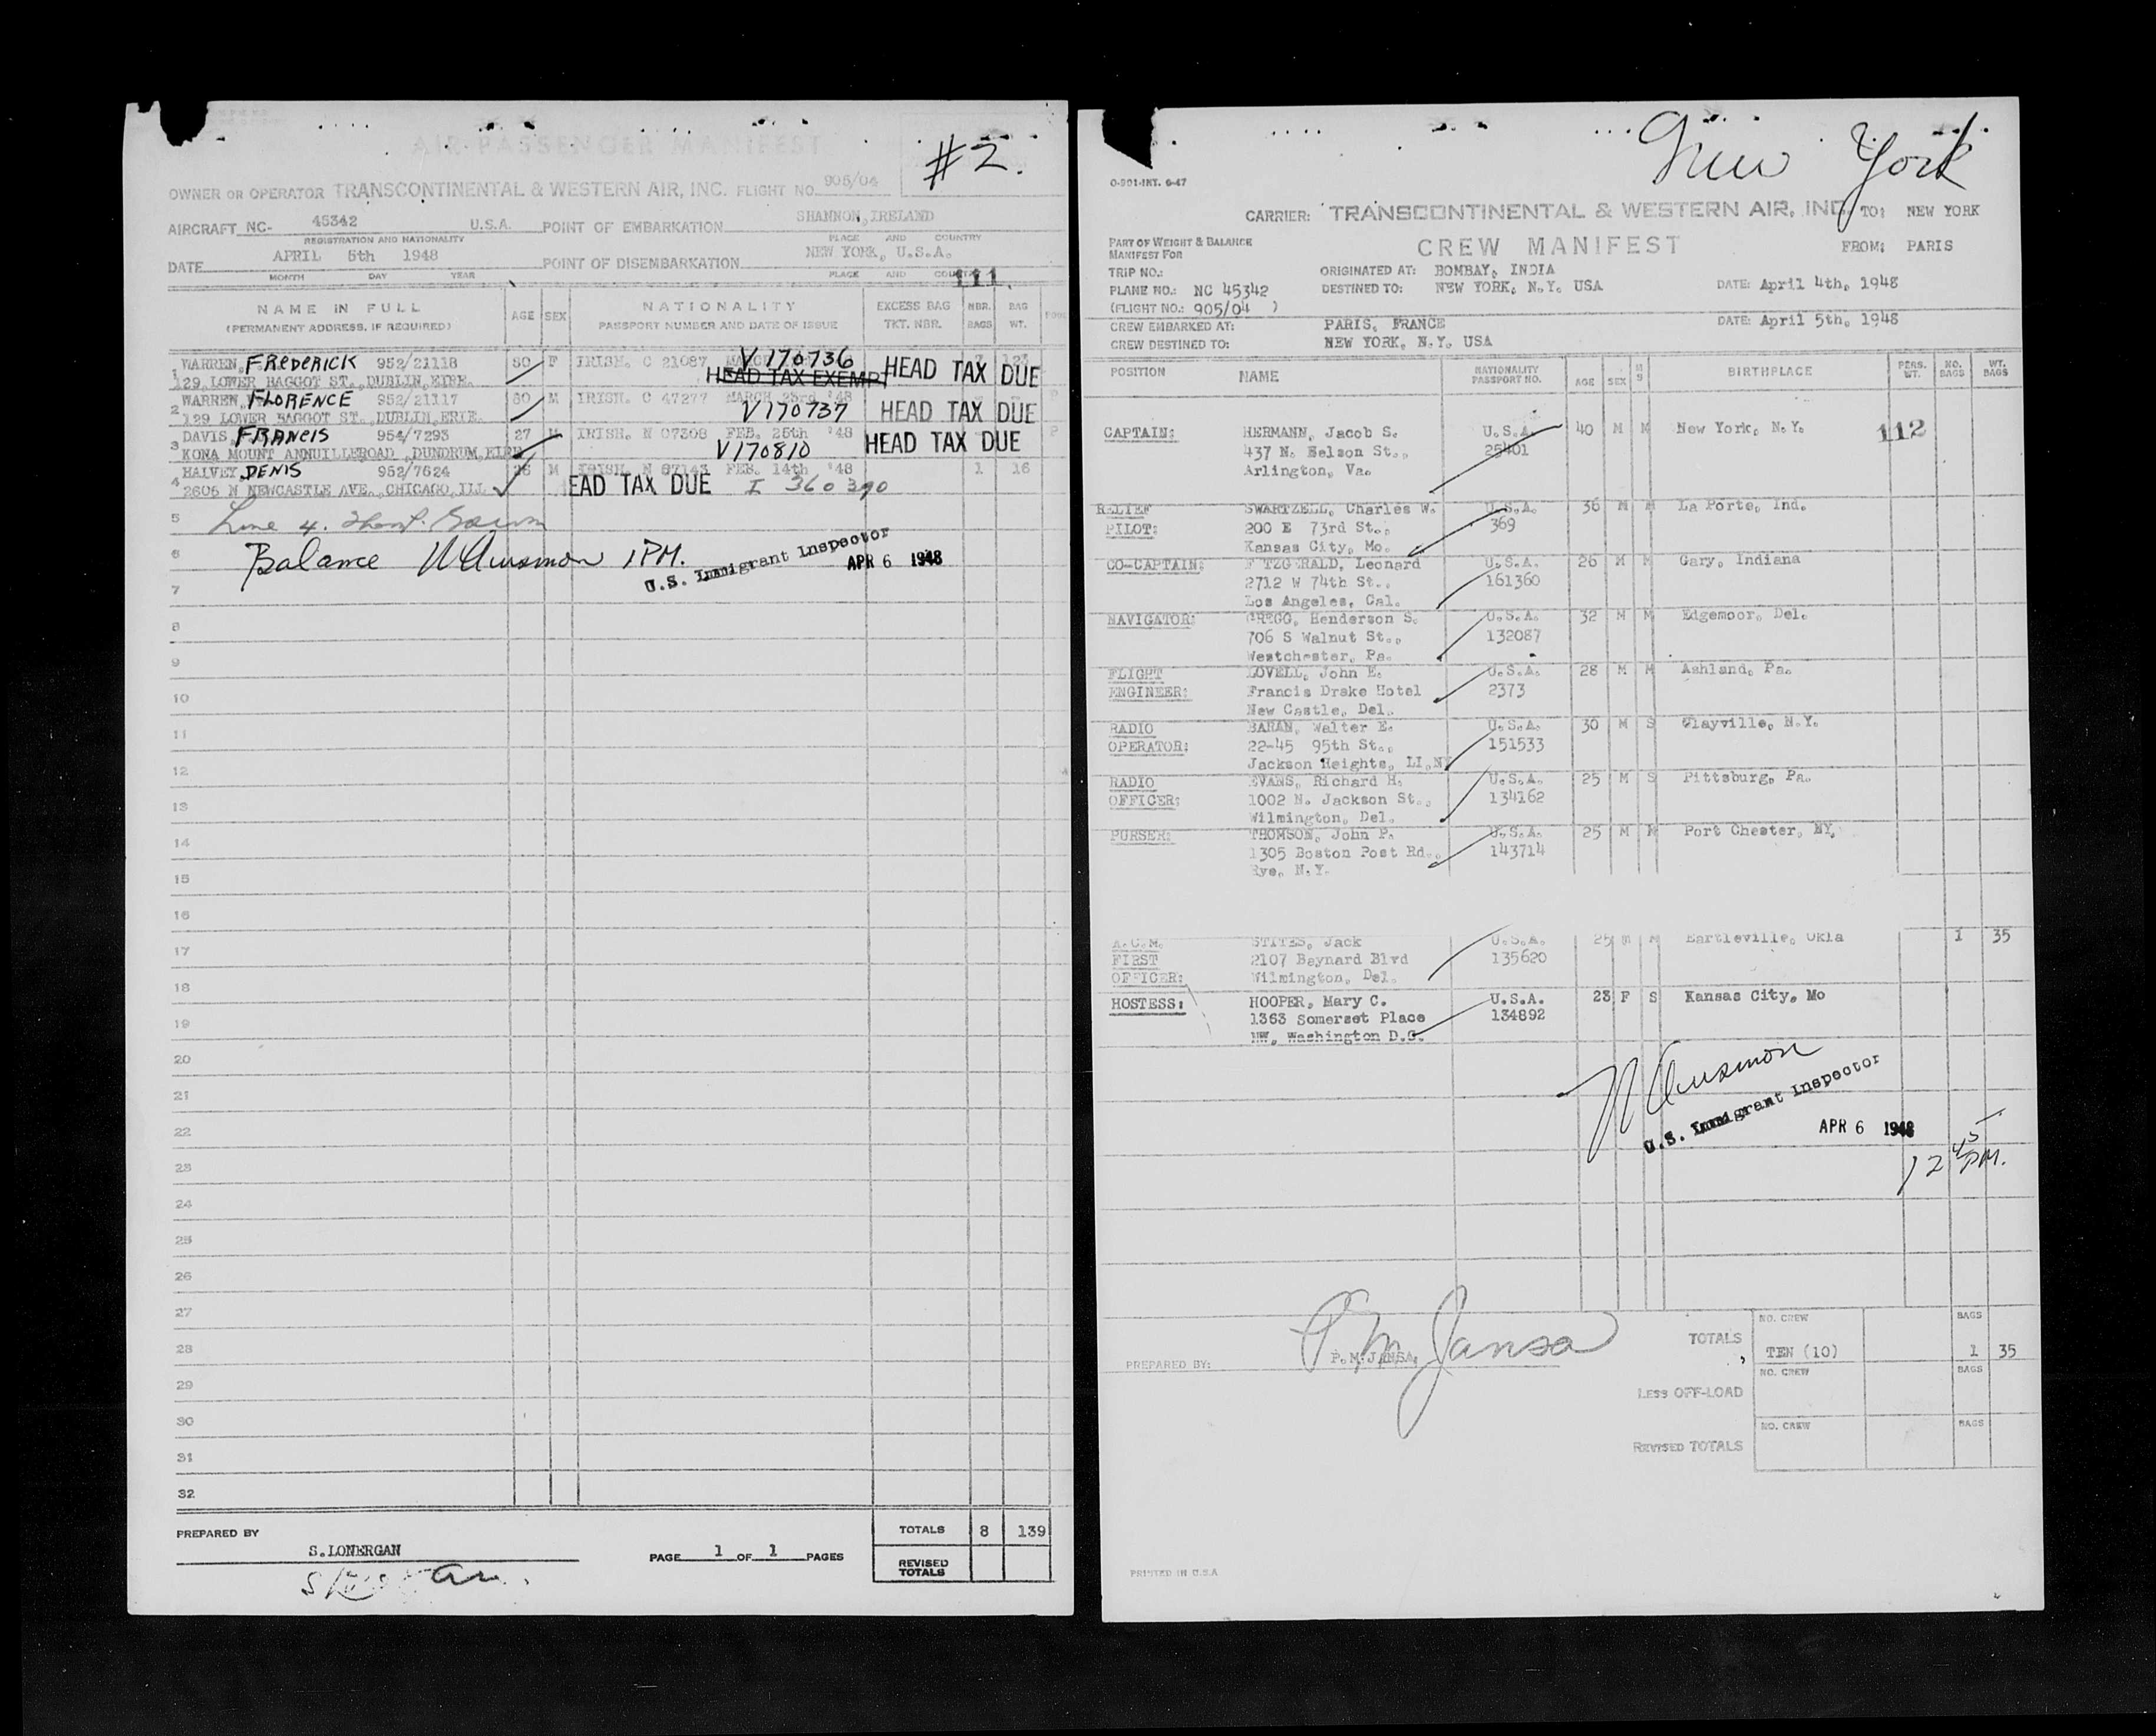 AIR PASSENGER MANIFEST
#2.
OWNER OR OPERATOR TRANSCONTINENTAL & WESTERN AIR, INC. FLIGHT NO. 905/04
AIRCRAFT NC- 45342 U.S.A. POINT OF EMBARKATION SHANNON, IRELAND
REGISTRATION AND NATIONALITY PLACE AND COUNTRY
DATE APRIL 5th 1948 POINT OF DISEMBARKATION NEW YORK, U.S.A.
MONTH DAY YEAR PLACE AND COUNTRY
111
NAME IN FULL AGE SEX NATIONALITY EXCESS BAG NBR. BAG
(PERMANENT ADDRESS, IF REQUIRED) PASSPORT NUMBER AND DATE OF ISSUE TKT. NBR. BAGS WT.
1 WARREN, FREDERICK 952/21118 80 F IRISH. C 21087 V 170736 HEAD TAX DUE
129 LOWER BAGGOT ST., DUBLIN, EIRE. HEAD TAX EXEMPT
2 WARREN, FLORENCE 952/21117 80 M IRISH. C 47277 MARCH 23rd '48
129 LOWER BAGGOT ST., DUBLIN, ERIE. V170737 HEAD TAX DUE
3 DAVIS, FRANCIS 954/7293 27 M IRISH. N 07308 FEB. 25th '48 HEAD TAX DUE
KONA MOUNT ANNUILLEROAD, DUNDRUM, EIRE V170810
4 HALVEY, DENIS 952/7624 28 M IRISH. N 87143 FEB. 14th '48 1 16
2605 N NEWCASTLE AVE., CHICAGO, ILL EAD TAX DUE I 360390
5 Line 4.
6 Balance 1 PM. U.S. Immigrant Inspector
APR 6 1948
7
8
9
10
11
12
13
14
15
16
17
18
19
20
21
22
23
24
25
26
27
28
29
30
31
32
PREPARED BY TOTALS 8 139
S. LONERGAN PAGE 1 OF 1 PAGES REVISED TOTALS
New York
O-901-INT. 6-47
CARRIER: TRANSCONTINENTAL & WESTERN AIR, INC. TO: NEW YORK
PART OF WEIGHT & BALANCE CREW MANIFEST FROM: PARIS
MANIFEST FOR
TRIP NO.: ORIGINATED AT: BOMBAY, INDIA
PLANE NO.: NC 45342 DESTINED TO: NEW YORK, N.Y. USA DATE: April 4th, 1948
(FLIGHT NO.: 905/04 )
CREW EMBARKED AT: PARIS, FRANCE DATE: April 5th, 1948
CREW DESTINED TO: NEW YORK, N.Y. USA
POSITION NAME NATIONALITY PASSPORT NO. AGE SEX M S BIRTHPLACE PERS. WT. NO. BAGS WT. BAGS
CAPTAIN: HERMANN, Jacob S. U.S.A. 40 M M New York, N.Y. 112
437 N. Nelson St., 25401
Arlington, Va.
RELIEF SWARTZELL, Charles W. U.S.A. 36 M M La Porte, Ind.
PILOT: 200 E 73rd St., 369
Kansas City, Mo.
CO-CAPTAIN: F TZGERALD, Leonard U.S.A. 26 M M Gary, Indiana
2712 W 74th St., 161360
Los Angeles, Cal.
NAVIGATOR: GREGG, Henderson S. U.S.A. 32 M M Edgemoor, Del.
706 S Walnut St., 132087
Westchester, Pa.
FLIGHT LOVELL, John E. U.S.A. 28 M M Ashland, Pa.
ENGINEER: Francis Drake Hotel 2373
New Castle, Del.
RADIO BARAN, Walter E. U.S.A. 30 M S Clayville, N.Y.
OPERATOR: 22-45 95th St., 151533
Jackson Heights, LI, NY
RADIO EVANS, Richard H. U.S.A. 25 M S Pittsburg, Pa.
OFFICER: 1002 N. Jackson St., 134162
Wilmington, Del.
PURSER: THOMSON, John P. U.S.A. 25 M M Port Chester, NY.
1305 Boston Post Rd., 143714
Rye, N.Y.
A.C.M. STITES, Jack U.S.A. 25 M M Bartleville, Okla 1 35
FIRST 2107 Baynard Blvd 135620
OFFICER: Wilmington, Del.
HOSTESS: HOOPER, Mary C. U.S.A. 23 F S Kansas City, Mo
1363 Somerset Place 134892
NW, Washington D.C.
U.S. Immigrant Inspector
APR 6 1948
12 45 PM.
P M Jansa
PREPARED BY: P. M. JANSA
NO. CREW BAGS
TOTALS TEN (10) 1 35
NO. CREW BAGS
LESS OFF-LOAD
NO. CREW BAGS
REVISED TOTALS
PRINTED IN U.S.A